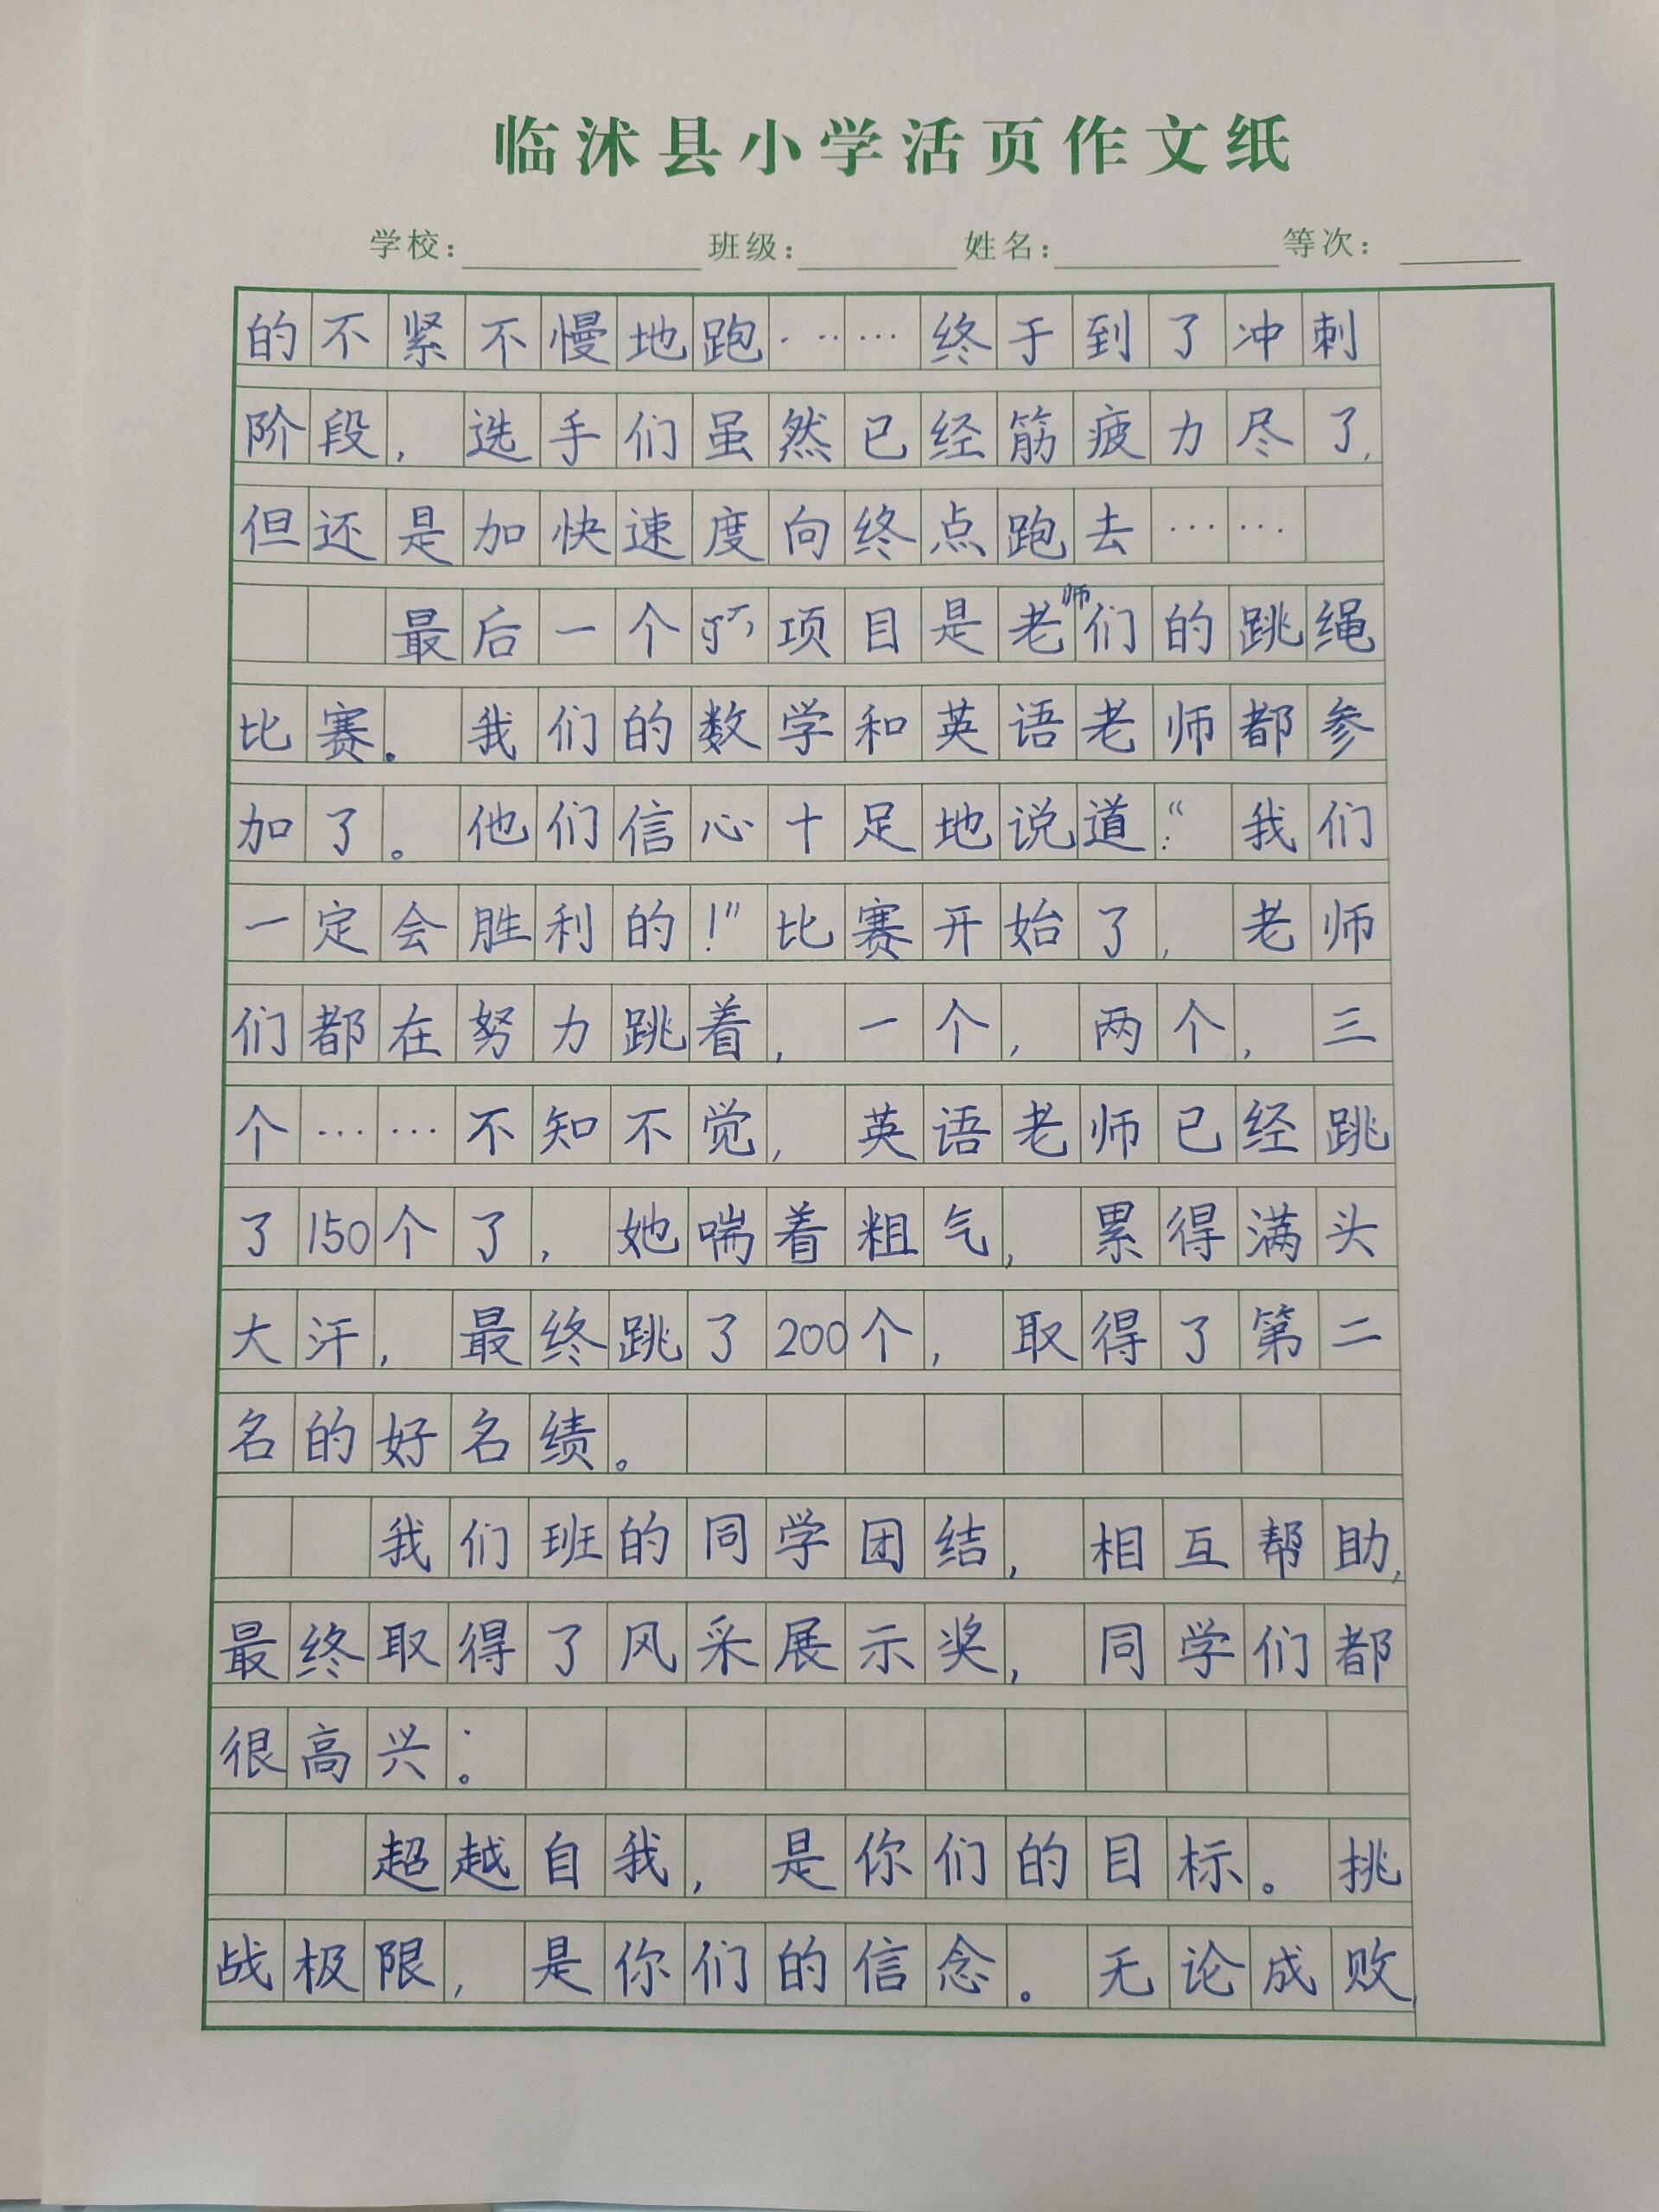 临沭县小学活页作文纸
学校： 班级： 姓名： 等次：
的不紧不慢地跑……终于到了冲刺
阶段，选手们虽然已经筋疲力尽了，
但还是加快速度向终点跑去……
最后一个项目是老师们的跳绳
比赛。我们的数学和英语老师都参
加了。他们信心十足地说道：“我们
一定会胜利的！”比赛开始了，老师
们都在努力跳着，一个，两个，三
个……不知不觉，英语老师已经跳
了150个了，她喘着粗气，累得满头
大汗，最终跳了200个，取得了第二
名的好名绩。
我们班的同学团结，相互帮助，
最终取得了风采展示奖，同学们都
很高兴。
超越自我，是你们的目标。挑
战极限，是你们的信念。无论成败，